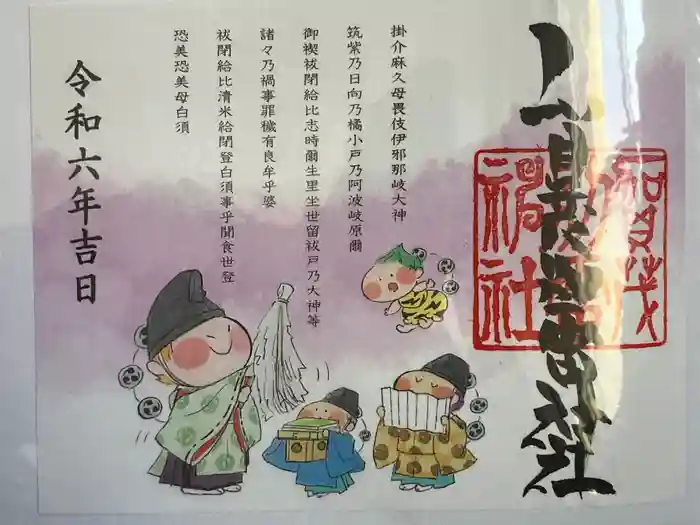 掛介麻久母畏伎伊邪那岐大神
筑紫乃日向乃橘小戸乃阿波岐原爾
御禊祓閉給比志時爾生里坐世留祓戸乃大神等
諸々乃禍事罪穢有良牟乎婆
祓閉給比清米給閉登白須事乎聞食世登
恐美恐美母白須
令和六年吉日